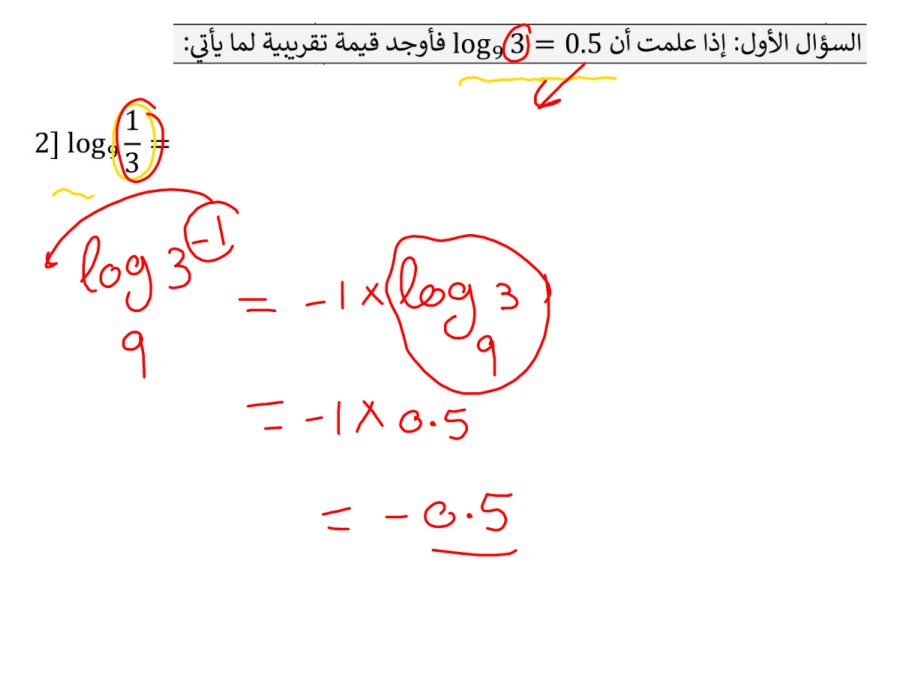 السؤال الأول: إذا علمت أن log₉ 3 = 0.5 فأوجد قيمة تقريبية لما يأتي:
2] log₉ 1/3 =
log₉ 3⁻¹ = -1 × log₉ 3
= -1 × 0.5
= -0.5